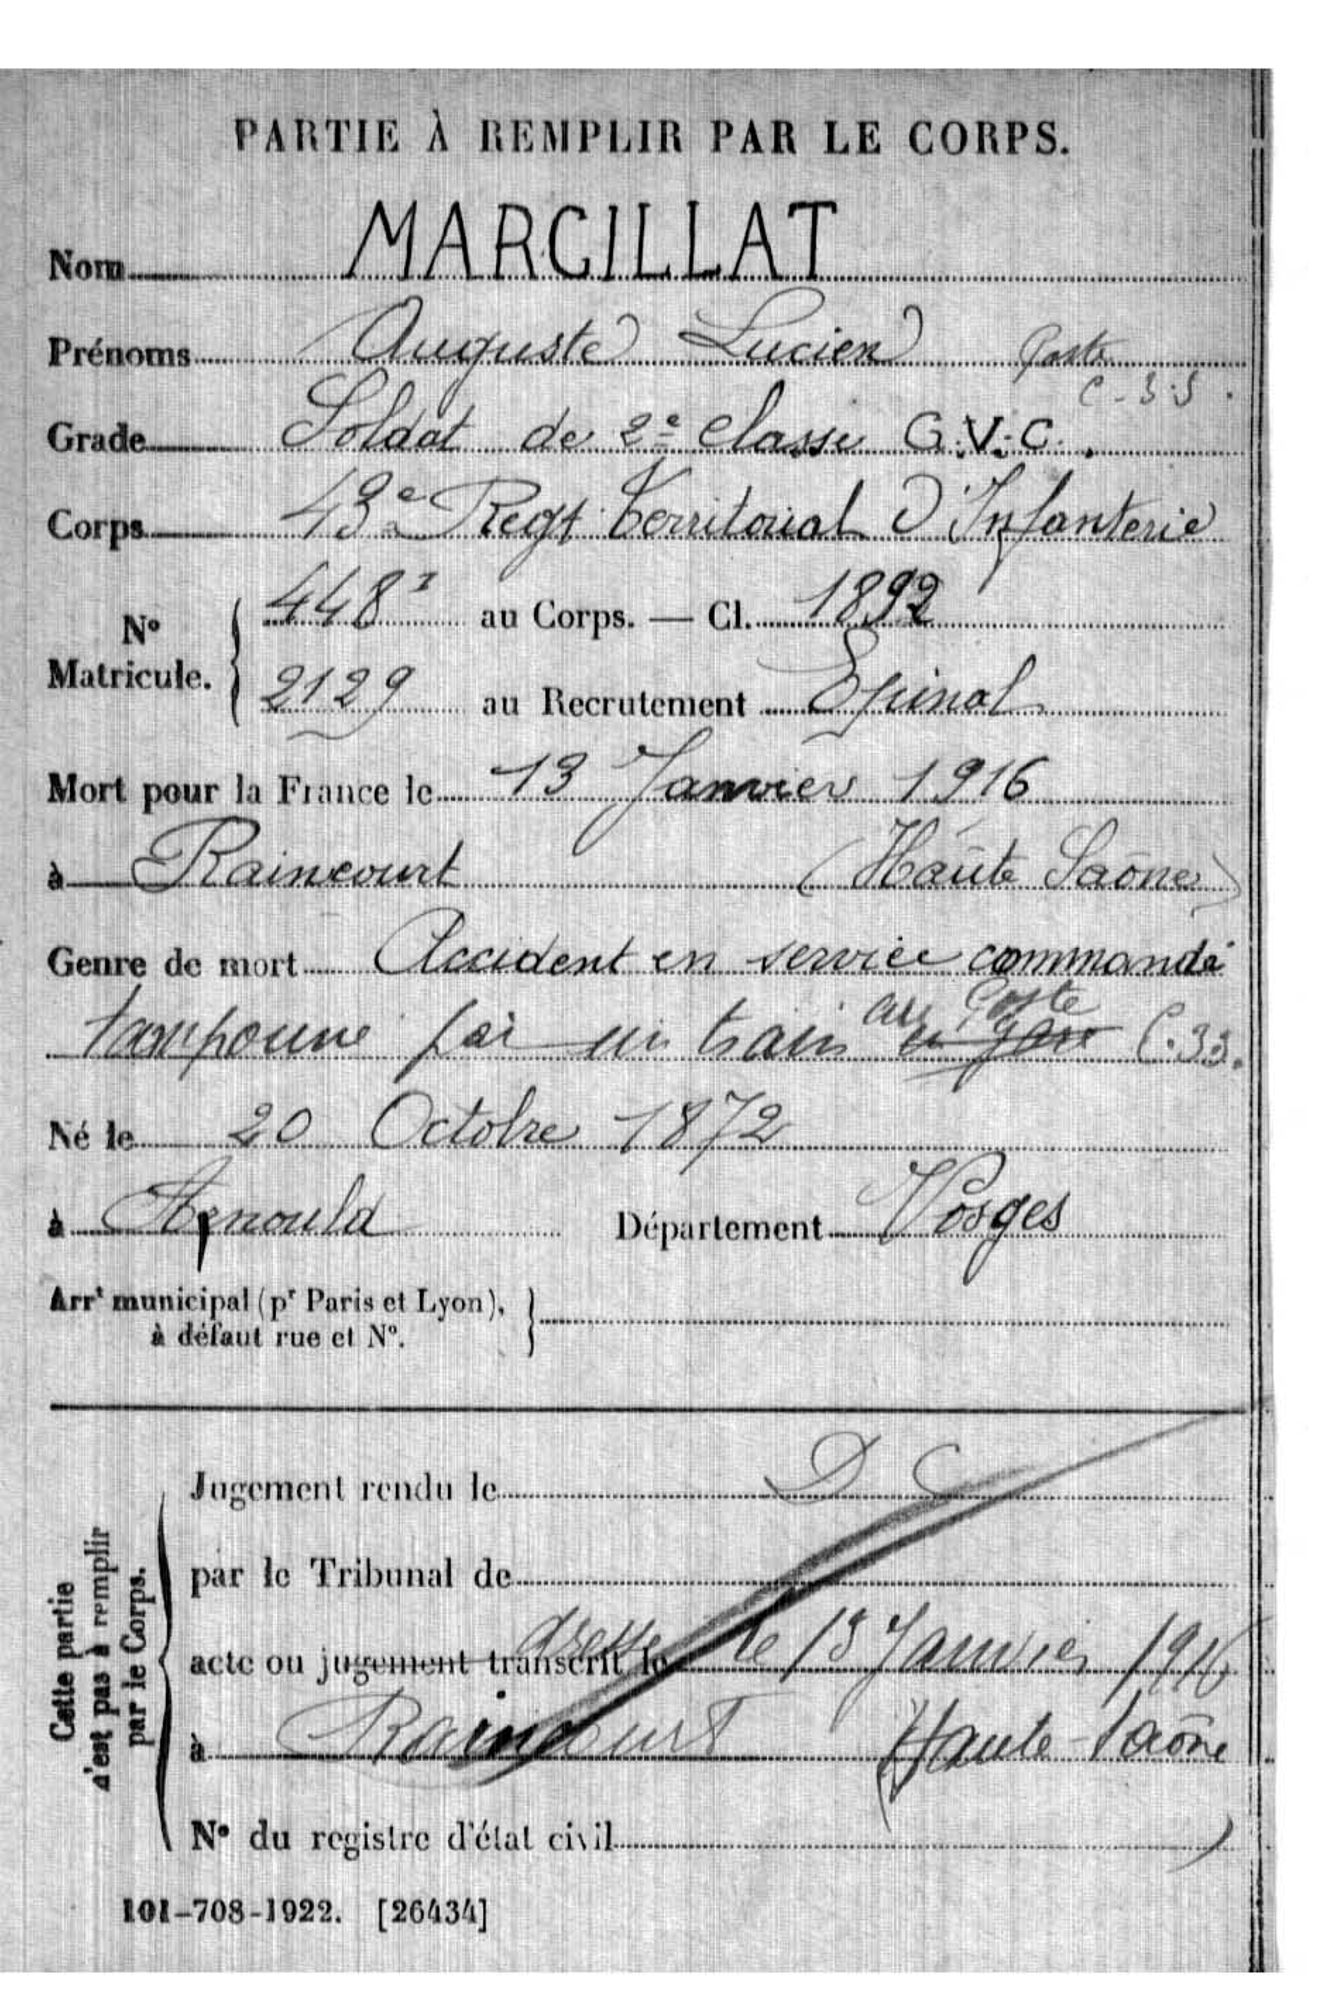 PARTIE À REMPLIR PAR LE CORPS.
Nom MARCILLAT
Prénoms Auguste Lucien Poste
C-33.
Grade Soldat de 2e classe G.V.C.
Corps 43e Regt Territorial d'Infanterie
N° Matricule. { 448 au Corps. — Cl. 1892
2129 au Recrutement Epinal
Mort pour la France le 13 Janvier 1916
à Raincourt (Haute Saône)
Genre de mort Accident en service commandé
au Poste
tamponné par un train en gare C.33.
Né le 20 Octobre 1872
à Anould Département Vosges
Arrt municipal (pr Paris et Lyon), à défaut rue et N°. }
Cette partie n'est pas à remplir par le Corps.
Jugement rendu le D C
par le Tribunal de
dressé
acte ou jugement transcrit le le 13 Janvier 1916
à Raincourt (Haute-Saône)
N° du registre d'état civil
101-708-1922. [26434]